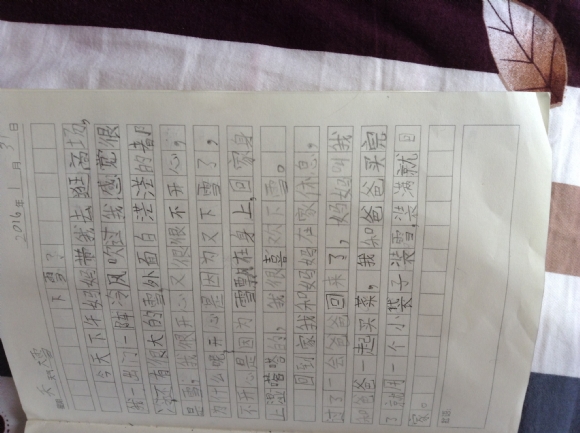 2016年1月31日
下雪了
今天下午妈妈带我去逛商场,
我一出门一阵冷风吹过我感觉很
冷还有很大的雪,外面白茫茫的都
是雪。我很开心又很不开心,
为什么呢开心是因为又下雪了,
不开心是因为雪飘在身上,回家身
上湿嗒嗒的,我很喜欢下雪。
回到家我和妈妈在家休息,
过了一会爸爸回来了,妈妈叫我
和爸爸一起买菜,我和爸爸买完
了就用一个小袋子装雪,装满就回
家。